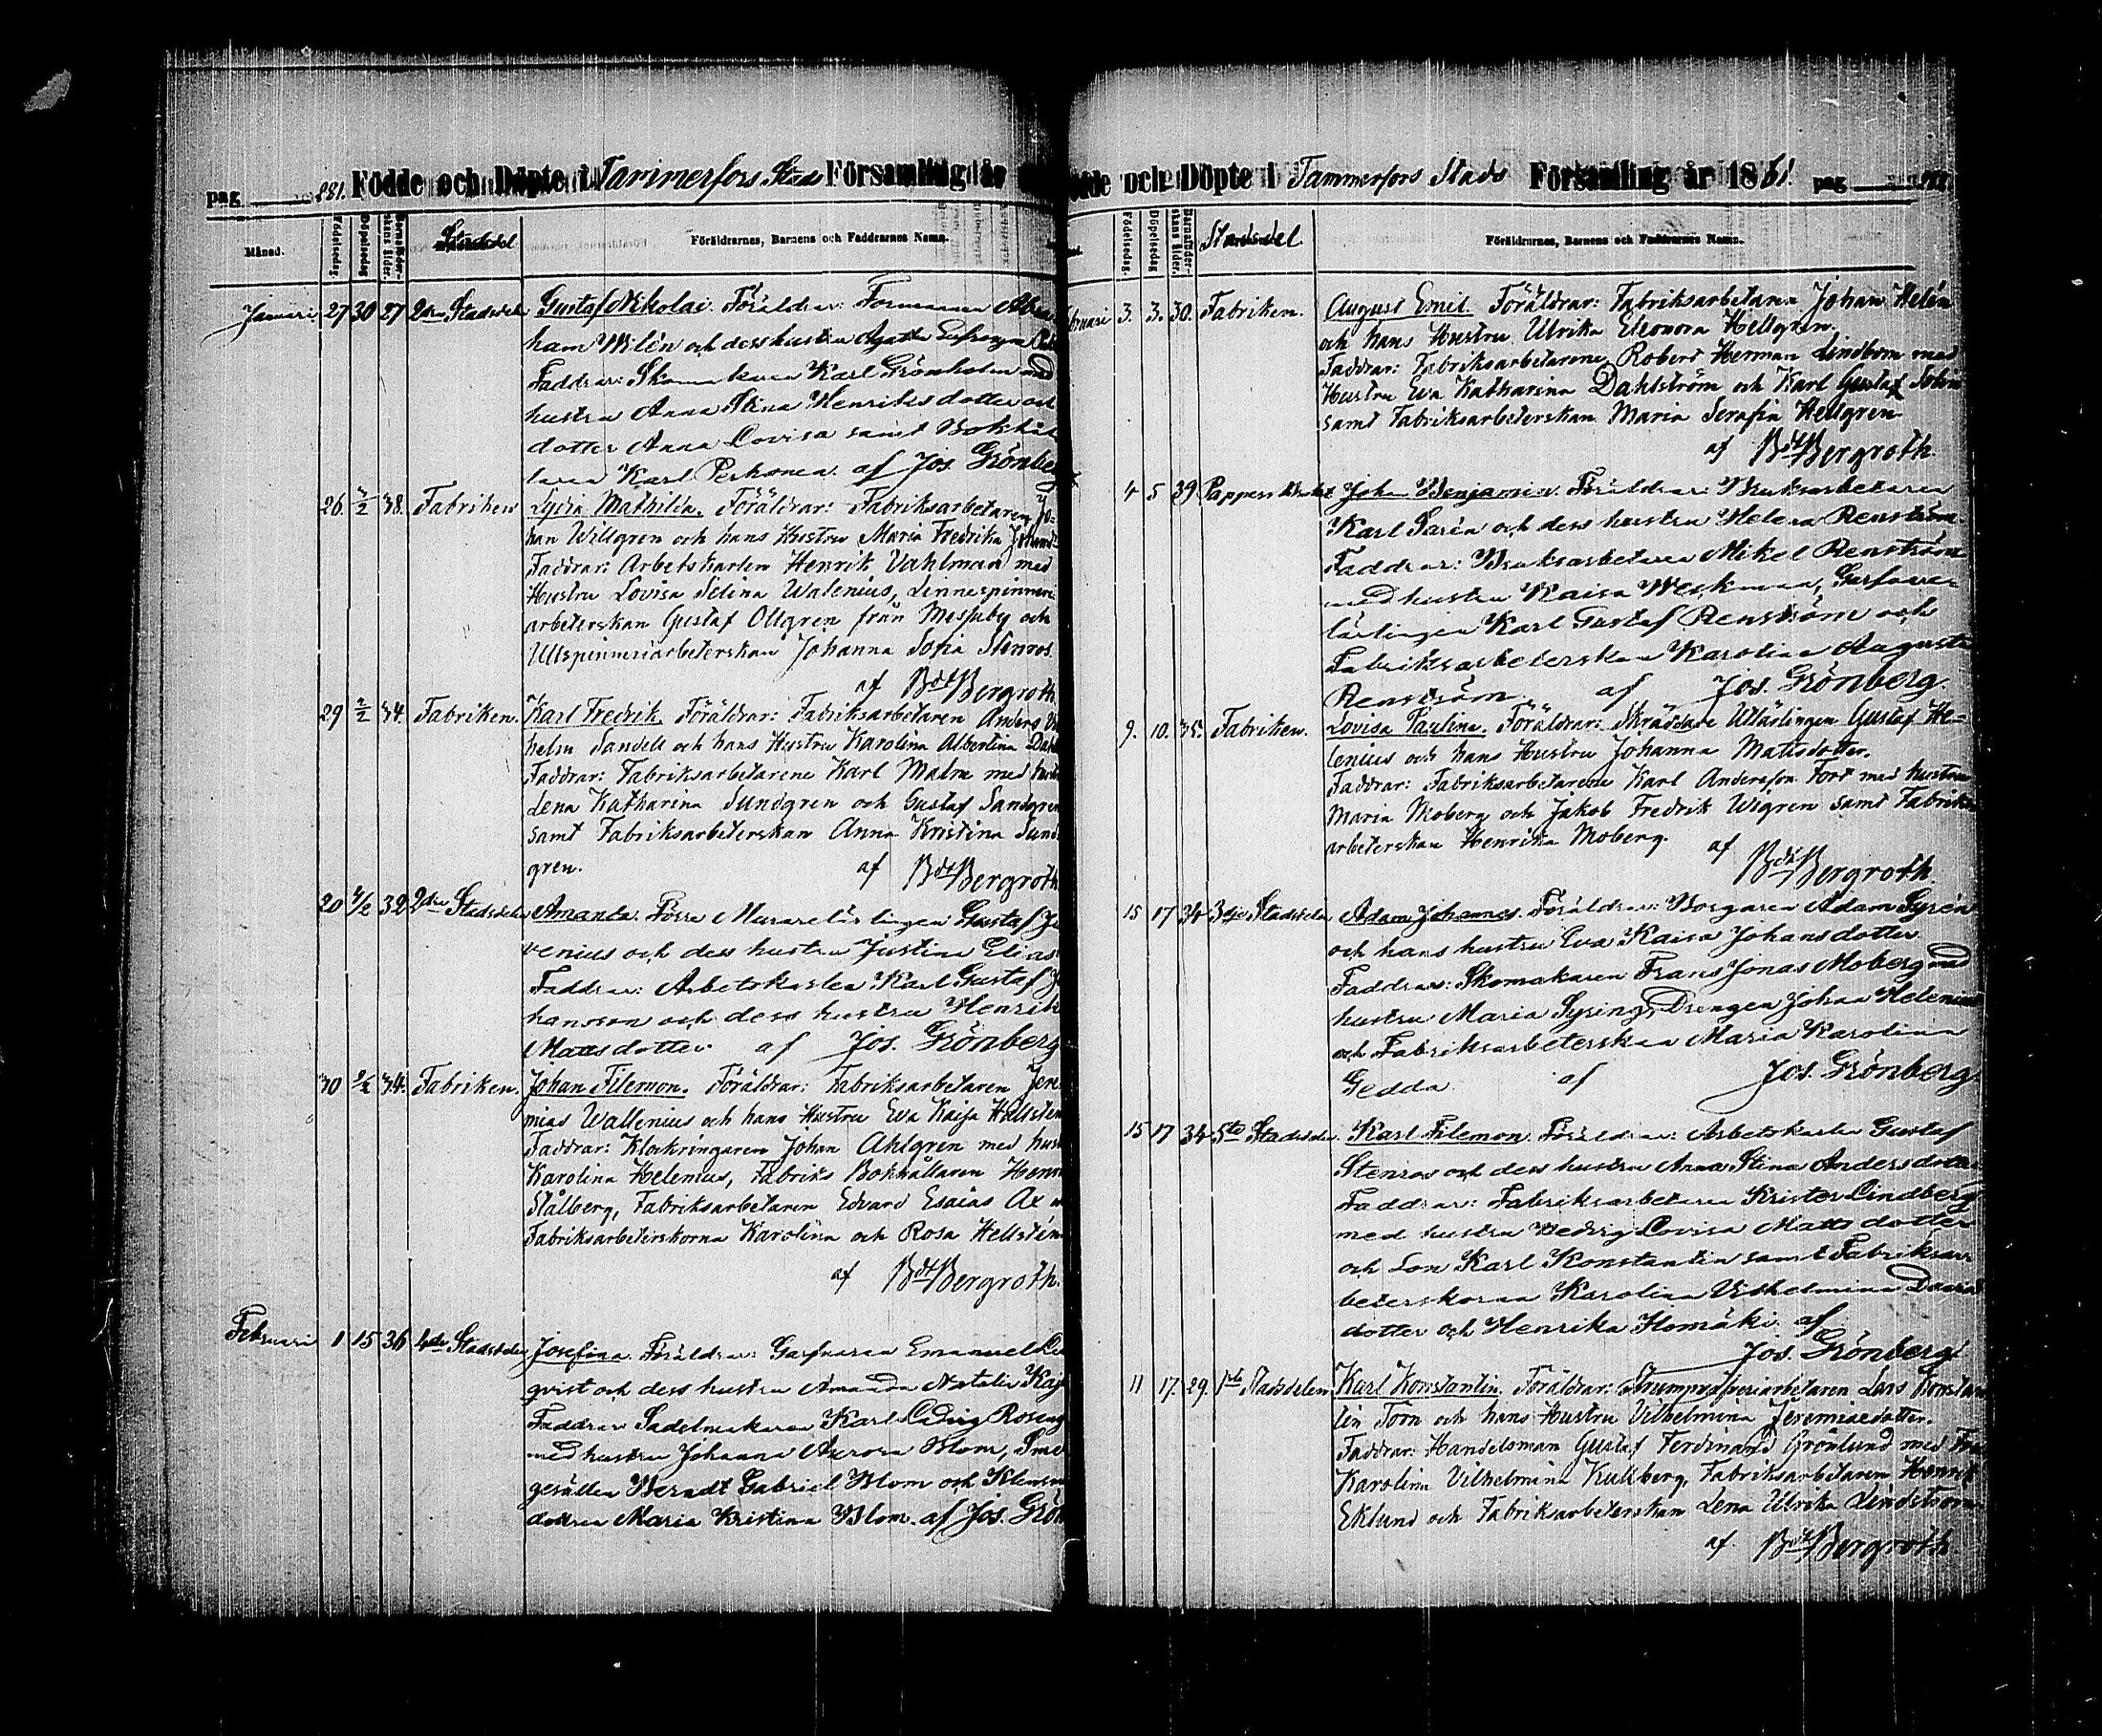 pag 881. Födde och Döpte i Tammerfors Stads Församling år
Månad. Födelsedag. Döpelsedag Barnaföderskans ålder. Stadsdel Föräldrarnes, Barnens och Faddrarnes Namn.
Januari 27 30 27 2dra Stadsdel Gustaf Nikolai. Föräldrar: Formannen Abra
ham Wilén och dess hustru Agatha
Faddrar: Skomakaren Karl Grönholm med
hustru Anna Stina Henriksdotter och
dotter Anna Lovisa samt Bokhål
laren Karl Perkonen. af Jos. Grönberg
26 2/2 38. Fabriken Lydia Mathilda. Föräldrar: Fabriksarbetaren Jo=
han Willgren och hans Hustru Maria Fredrika
Faddrar: Arbetskarlen Henrik Vahlman med
Hustru Lovisa Selina Walenius, Linnespinneri
arbeterskan Gustaf Ollgren från Messuby och
Ullspinneriarbeterskan Johanna Sofia Stenros.
af Bdt Bergroth.
29 2/2 34. Fabriken. Karl Fredrik. Föräldrar: Fabriksarbetaren Anders Vil
helm Sandell och hans Hustru Karolina Albertina Dahl
Faddrar: Fabriksarbetarene Karl Malm med hustru
Lena Katharina Sundgren och Gustaf Sandgren
samt Fabriksarbeterskan Anna Kristina Sund
gren. af Bdt Bergroth.
20 4/2 32 2dra Stadsdelen Amanda. Förre Murarelärlingen Gustaf Ju
venius och dess hustru Justina Elias
Faddrar: Arbetskarlen Karl Gustaf Jo
hansson och dess hustru Henrik
Mattsdotter. af Jos. Grönberg
30 9/2 34. Fabriken. Johan Filemon. Föräldrar: Fabriksarbetaren Jere
mias Wallenius och hans Hustru Eva Kaisa Hellstén
Faddrar: Klockringaren Johan Ahlgren med hust
Karolina Helenius, Fabriks Bokhållaren Henrik
Stålberg, Fabriksarbetaren Edvard Esaias Ax
Fabriksarbeterskorna Karolina och Rosa Hellstén
af Bdt Bergroth.
Februari 1 15 36 4de Stadsdelen Josefina. Föräldrar: Garfvaren Emanuel
qvist och dess hustru Amanda Natalia
Faddrar Sadelmakaren Karl Rosenq
med hustru Johanna Aurora Blom, Smed
gesällen Berndt Gabriel Blom och Klensmeds
dottren Maria Kristina Blom. af Jos. Grön
Födde och Döpte i Tammerfors Stads Församling år 1861. pag
Födelsedag. Döpelsedag Barnaföderskans ålder. Stadsdel. Föräldrarnes, Barnens och Faddrarnes Namn.
bruari 3. 3. 30. Fabriken. August Emil. Föräldrar: Fabriksarbetaren Johan Helén
och hans Hustru Ulrika Eleonora Hellgren.
Faddrar: Fabriksarbetarene Robert Herman Lindbom med
Hustru Eva Katharina Dahlström och Karl Gustaf
samt Fabriksarbeterskan Maria Serafia Hellgren
af Bdt Bergroth.
4 5 39 Pappersbruket Johan Benjamin. Föräldrar: Bruksarbetaren
Karl Sarén och dess hustru Helena Renström.
Faddrar: Bruksarbetaren Mikel Renström
med hustru Kaisa Weckman, Garfvare-
lärlingen Karl Gustaf Renström och
Fabriksarbeterskan Karolina Augusta
Renström. af Jos. Grönberg.
9. 10. 35. Fabriken. Lovisa Paulina. Föräldrar: Skräddare Utlärlingen Gustaf He=
lenius och hans Hustru Johanna Mattsdotter.
Faddrar: Fabriksarbetarene Karl Andersson Fors med hustru
Maria Moberg och Jakob Fredrik Wigren samt Fabriks
arbeterskan Henrika Moberg. af
Bdt Bergroth.
15 17 34 3dje Stadsdelen Adam Johannes. Föräldrar: Borgaren Adam Syrén
och hans hustru Eva Kaisa Johansdotter
Faddrar: Skomakaren Frans Jonas Moberg med
hustru Maria Syring, Drengen Johan Helenius
och Fabriksarbeterskan Maria Karolina
Gedda. af Jos. Grönberg.
15 17 34 5te Stadsdelen. Karl Filemon. Föräldrar: Arbetskarlen Gustaf
Stenros och dess hustru Anna Stina Andersdotter
Faddrar: Fabriksarbetaren Krister Lindberg
med hustru Hedvig Lovisa Mattsdotter
och Son Karl Konstantin samt Fabriksar
beterskorna Karolina Vilhelmina Davids
dotter och Henrika Homäki. af
Jos. Grönberg.
11 17. 29. 1sta Stadsdelen Karl Konstantin. Föräldrar: Strumpväfveriarbetaren Lars Konstan
tin Torn och hans Hustru Vilhelmina Jeremiaedotter.
Faddrar: Handelsman Gustaf Ferdinand Grönlund med Fru
Karolina Vilhelmina Kullberg, Fabriksarbetaren Henrik
Eklund och Fabriksarbeterskan Lena Ulrika Lindström
af Bdt Bergroth